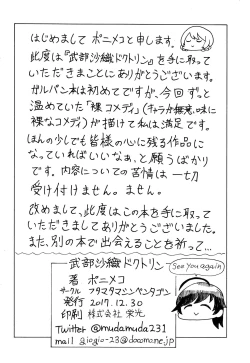 はじめまして ポニメコと申します。
此度は『武部沙織ドクトリン』を手に取って
いただきまことにありがとうございます。
ガルパン本は初めてですが、今回ずっと
温めていた「裸コメディ」(キャラが無意味に
裸なコメディ)が描けて私は満足です。
ほんの少しでも皆様の心に残る作品に
なっていればいいなぁ、と願うばかり
です。内容についての苦情は一切
受け付けません。ません。
改めまして、此度はこの本を手に取って
いただきありがとうございました。
また、別の本で出会えることを祈って…
武部沙織ドクトリン
著 ポニメコ
サークル フタマタマシンペンタゴン
発行 2017.12.30
印刷 株式会社 栄光
Twitter @mudamuda231
mail giogio-23@docomo.ne.jp
See you again